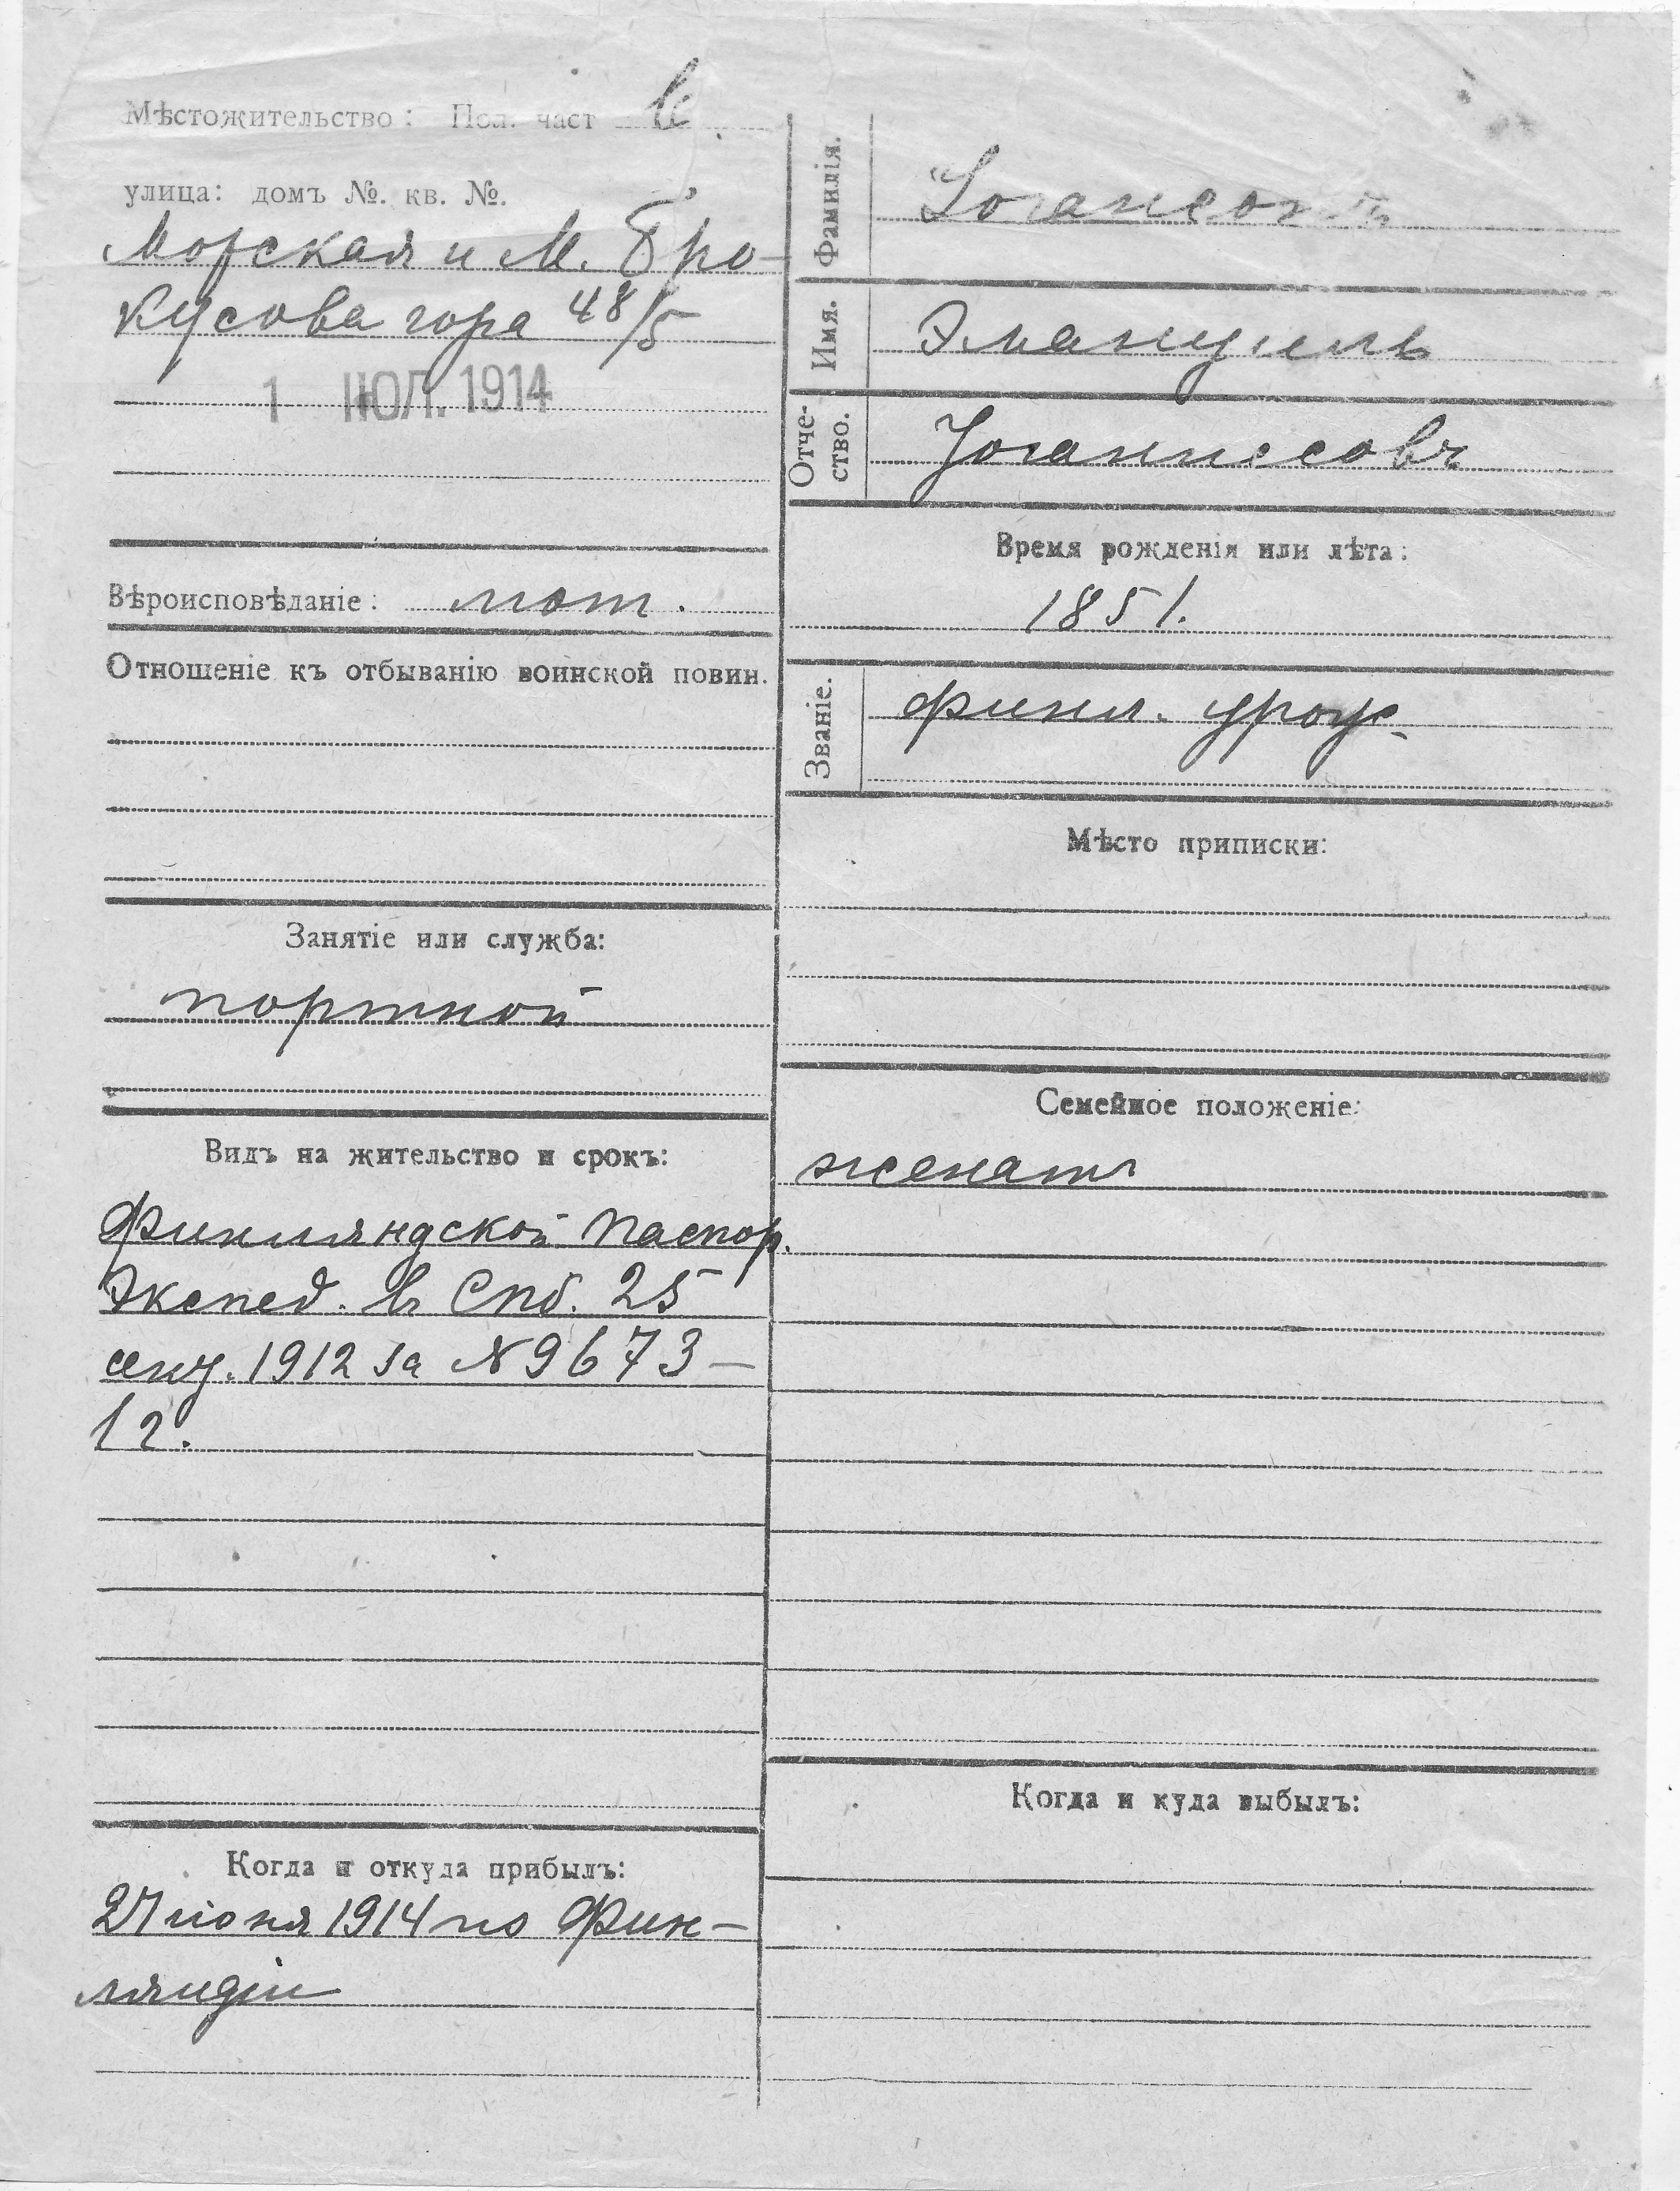 Мѣстожительство: Пол. част
улица: домъ №. кв. №.
Морская и М. Бро-
кусова гора 48/5
1 ІЮЛ. 1914
Вѣроисповѣданіе: лют.
Отношеніе къ отбыванію воинской повин.
Занятіе или служба:
портной
Видъ на жительство и срокъ:
Финляндской паспор.
Экспед. въ Спб. 25
сент. 1912 за № 9673 –
12.
Когда и откуда прибылъ:
27 іюня 1914 по Фин-
ляндіи
Фамилія.
Іогансонъ
Имя.
Эмануиль
Отче-
ство.
Іоганнесовъ
Время рожденія или лѣта:
1851.
Званіе.
финл. урож.
Мѣсто приписки:
Семейное положеніе:
женатъ
Когда и куда выбылъ: